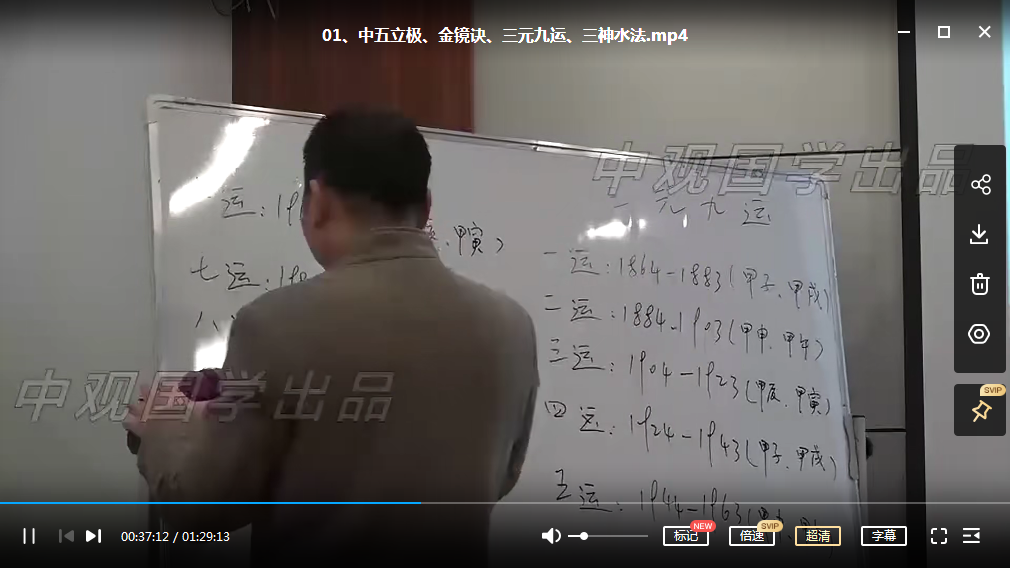 01、中五立极、金镜诀、三元九运、三神水法.mp4
中观国学出品
元九运
运：19
甲寅）
七运：19
八
一运：1864－1883（甲子、甲戌）
二运：1884－1903（甲申、甲午）
三运：1904－1923（甲辰、甲寅）
四运：1924－1943（甲子、甲戌）
五运：1944－1963（甲
中观国学出品
SVIP
00:37:12 / 01:29:13
标记
NEW
倍速
SVIP
超清
字幕